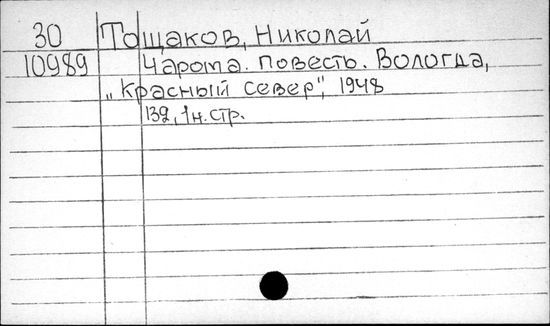 30 Тощаков, Николай
10989 Чарома. Повесть. Вологда,
„Красный Север", 1948
139, 1 н. стр.